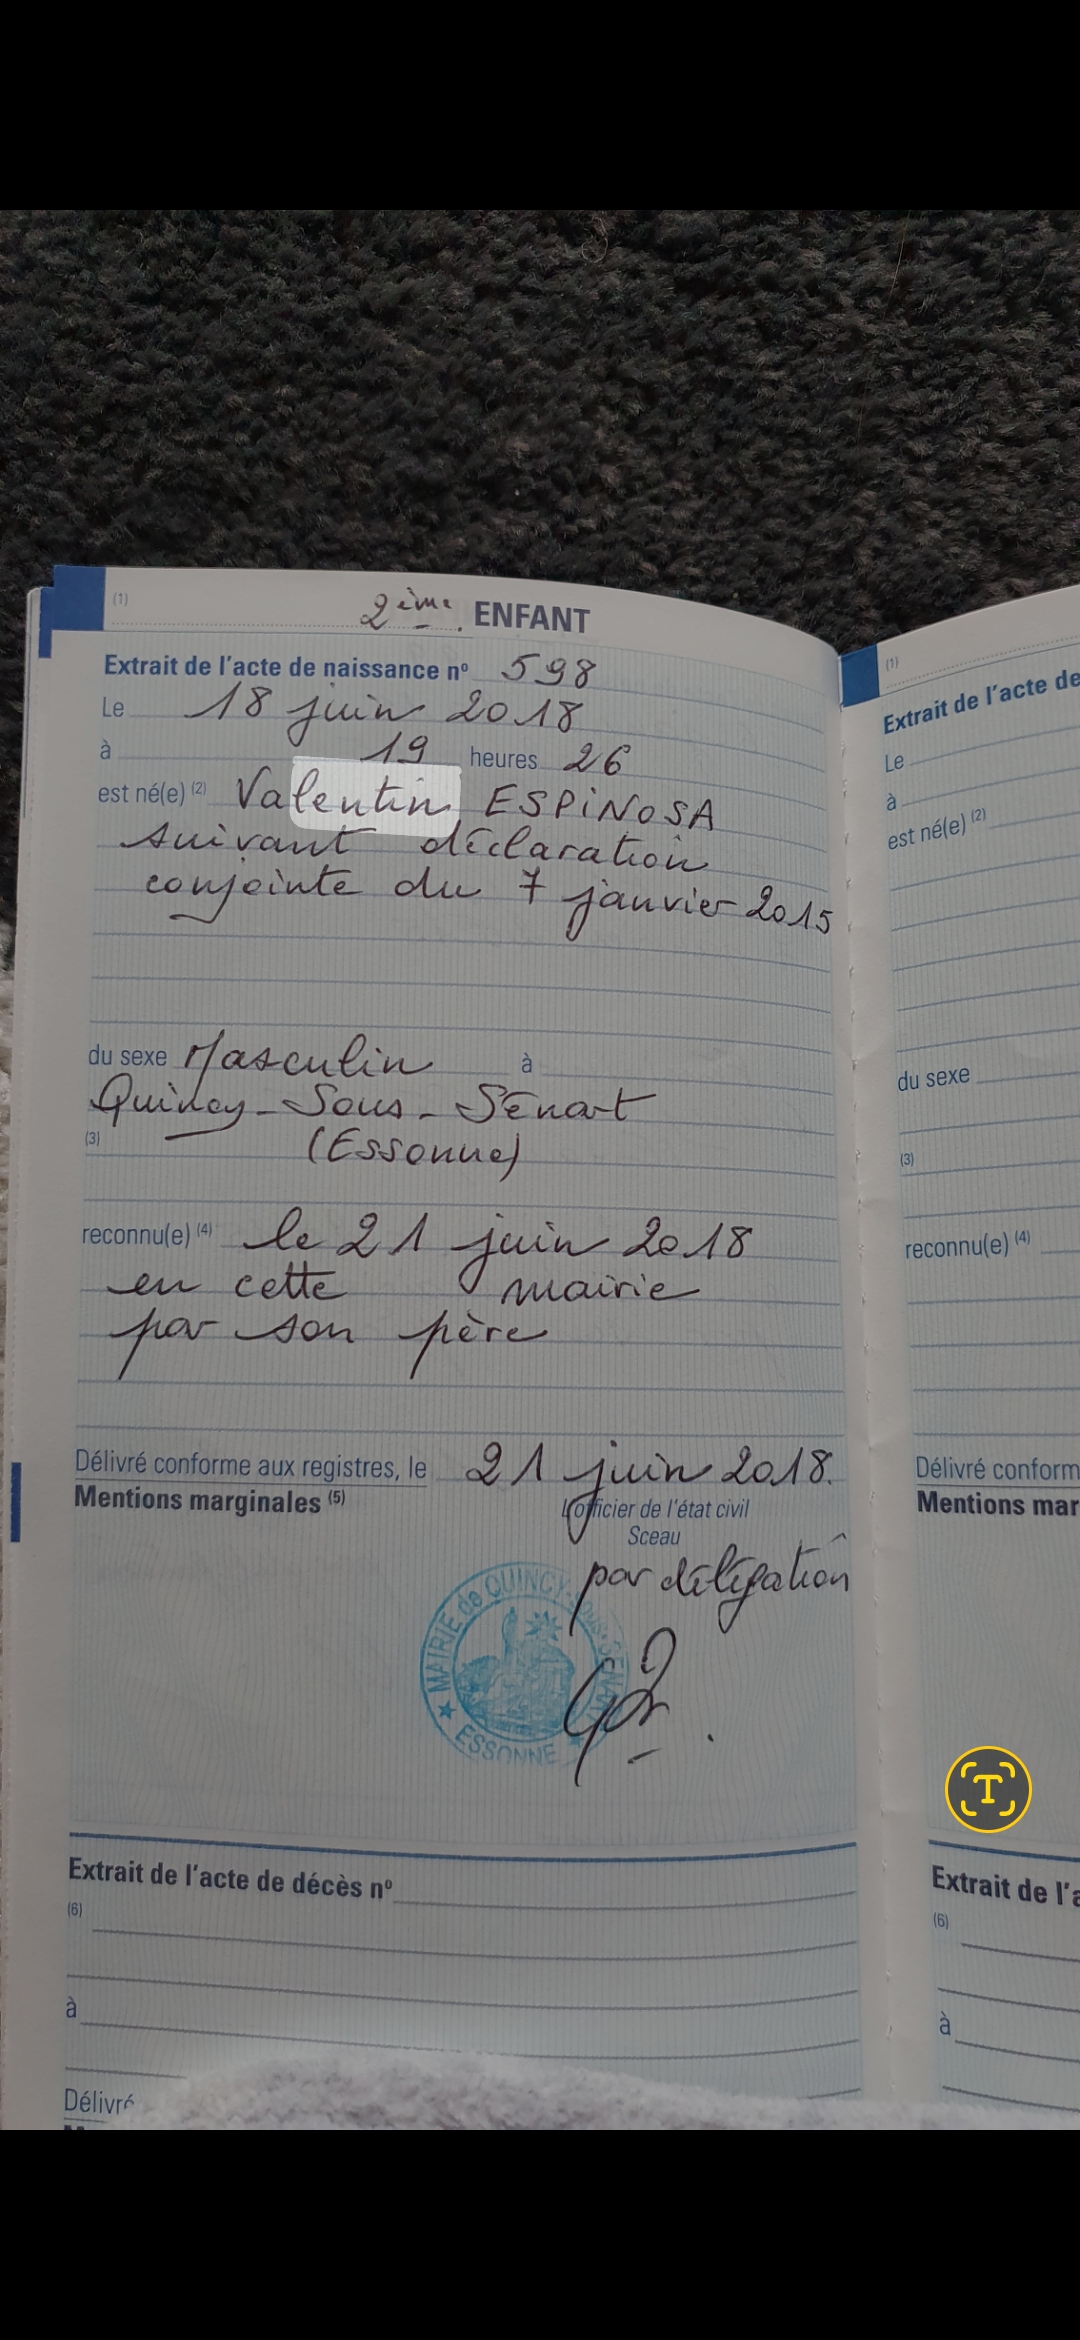 (1) 2ème ENFANT
Extrait de l'acte de naissance nº 598
Le 18 juin 2018
à 19 heures 26
est né(e) (2) Valentin ESPINOSA
suivant déclaration
conjointe du 7 janvier 2015
du sexe Masculin à
Quincy-Sous-Sénart
(3) (Essonne)
reconnu(e) (4) le 21 juin 2018
en cette mairie
par son père
Délivré conforme aux registres, le 21 juin 2018.
Mentions marginales (5)
L'officier de l'état civil
Sceau
par délégation
MAIRIE de QUINCY-sous-SENART
★ ESSONNE ★
Extrait de l'acte de décès nº
(6)
à
Délivré
(1)
Extrait de l'acte de
Le
à
est né(e) (2)
du sexe
(3)
reconnu(e) (4)
Délivré conform
Mentions mar
Extrait de l'a
(6)
à
T